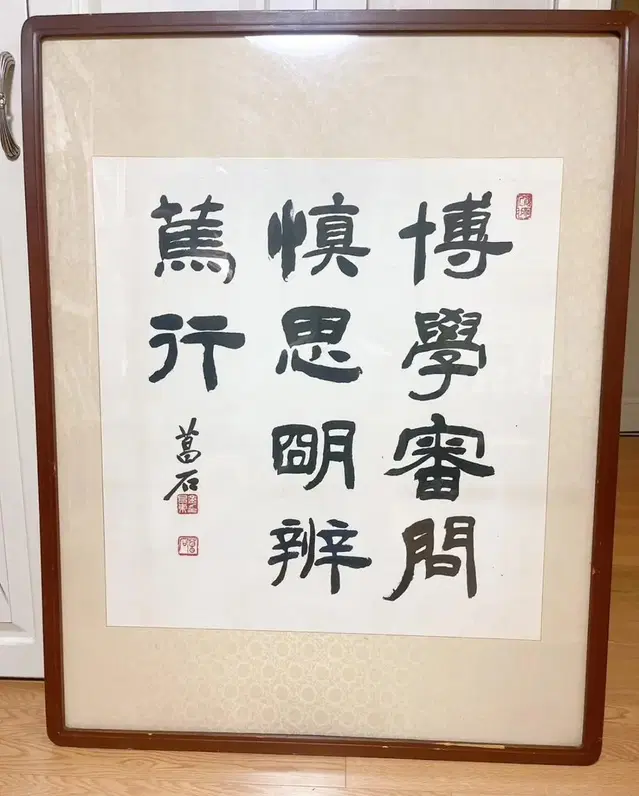 博學審問
慎思明辨
篤行
菖石